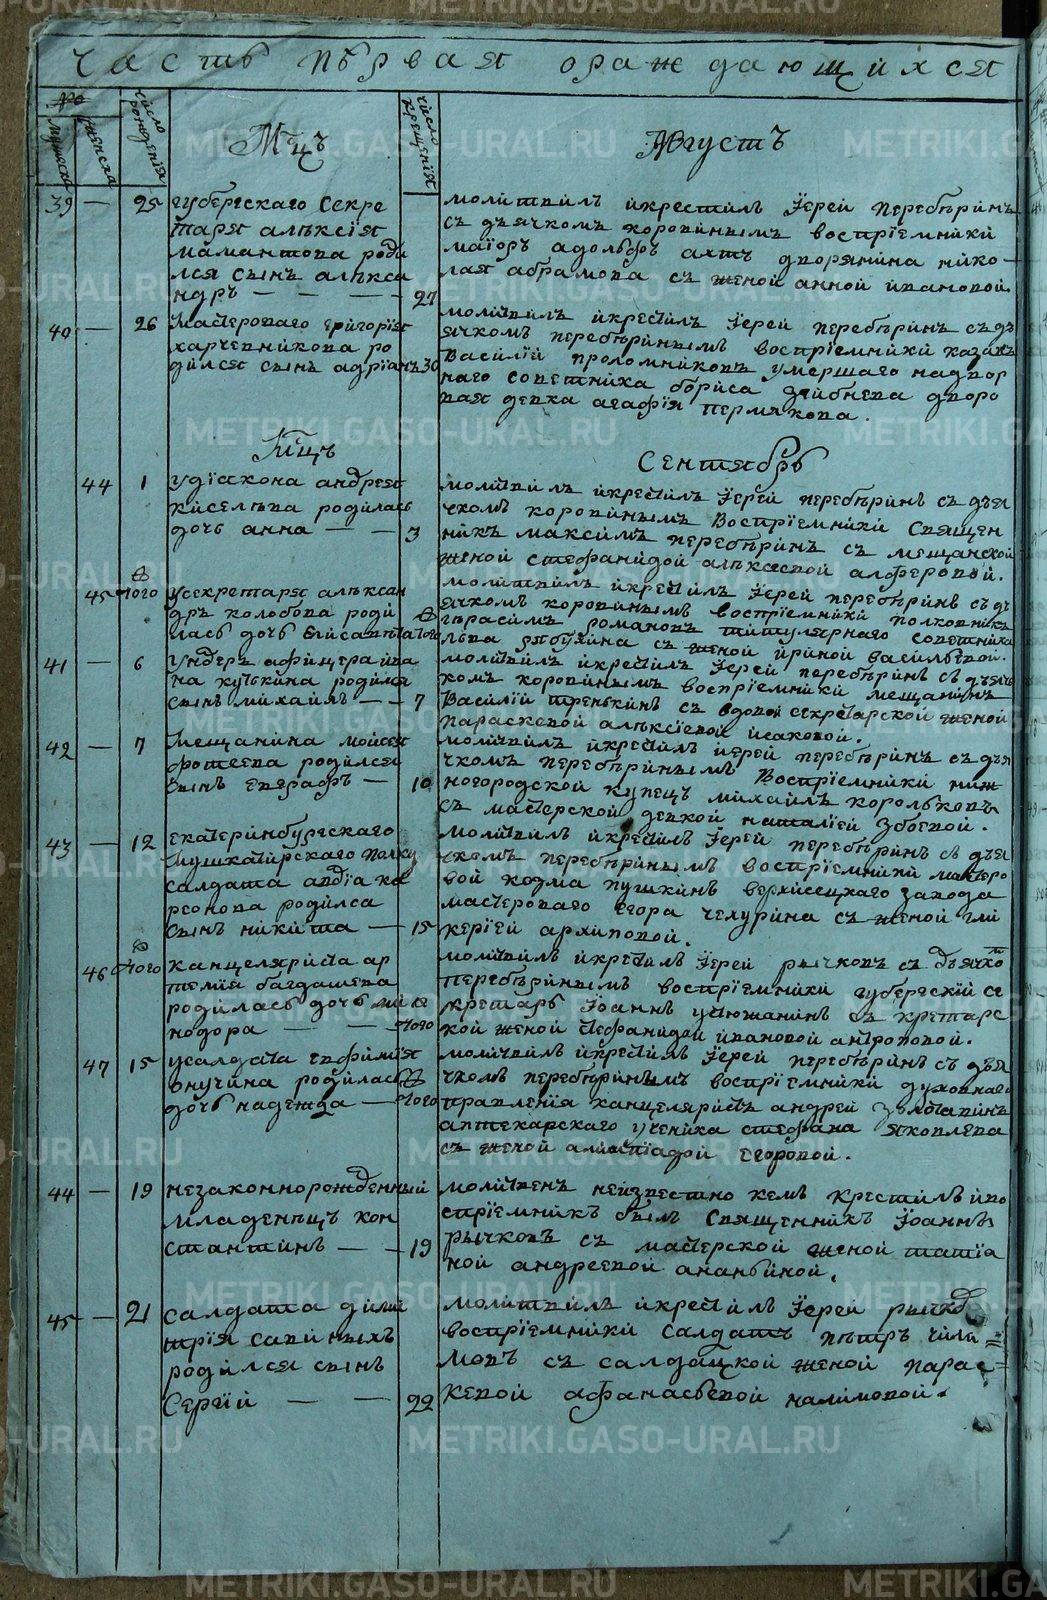 часть первая ораждающихся
число рождения
Мцъ
число крещения
Августъ
39 — 25 губернскаго секре
таря алексiя
мамантова роди
лся сынъ алекса
ндръ — — — 27
молитвилъ икрестилъ Iерей перебѣринъ
съ дъячкомъ коровинымъ воспрiемники
маiоръ адольфъ дворянина нико
лая абрамова съ женой анной ивановой.
40 — 26 Мастероваго григорiя
харчевникова ро
дился сынъ адрiанъ 30
молитвилъ икрестилъ Iерей перебѣринъ съ дъ
ячкомъ перебѣринымъ воспрiемники казакъ
Василiй проломниковъ умершаго надвор
наго советника бориса дворо
вая девка агафiя пермякова.
Мцъ
Сентябрь
44 1 удiакона андрея
киселѣва родилась
дочь анна — — 3
молитвилъ икрестилъ Iерей перебѣринъ съ дъя
чкомъ коровинымъ Воспрiемники Священ
никъ максимъ перебѣринъ съ мещанской
женой стефанидой алексѣевой алферовой.
45 того усекретаря алексан
дръ колобова роди
лась дочь Елисавета того
молитвилъ икрестилъ Iерей перебѣринъ съ дъ
ячкомъ коровинымъ воспрiемники полковникъ
герасимъ романовъ титулярнаго советника
льва рябухина съ женой ириной васильевой.
41 — 6 Ундеръ афицера ива
на кутькина родился
сынъ михаилъ — — 7
молитвилъ икрестилъ Iерей перебѣринъ съ дъяч
комъ коровинымъ воспрiемники мещанинъ
Василiй тренькинъ съ вдовой секретарской женой
парасковой алексiевой исаковой.
42 — 7 Мещанина мойсея
фотеева родился
сынъ Евграфъ — 10
молитвилъ икрестилъ iерей перебѣринъ съ дъя
чкомъ перебѣринымъ Воспрiемники ниж
ногородской купецъ михаилъ корольковъ
съ мастерской девкой наталiей збоевой.
43 — 12 Екатеринбургскаго
Мушкатирскаго полку
салдата авдiа ка
реонова родился
сынъ никита — 15
молитвилъ икрестилъ Iерей перебѣринъ съ дъя
чкомъ перебѣринымъ воспрiемники мастеро
вой козма пушкинъ верхисецкаго завода
мастероваго егора чехурина съ женой гли
керiей архиповой.
46 того канцеляриста ар
темiя багдашева
родилась дочь ми
нодора — — того
молитвилъ икрестилъ Iерей рычковъ съ дъячко
перебѣринымъ воспрiемники губернскiй се
кретарь Iоаннъ устюжанинъ секретарс
кой женой стефанидой ивановой антроповой.
47 15 усалдата евфимiя
онучина родилась
дочь надежда — того
молитвилъ икрестилъ Iерей перебѣринъ съ дъя
чкомъ перебѣринымъ воспрiемники духовнаго
правленiя канцеляристъ андрей
аптекарскаго ученика стефана яковлева
съ женой алимпiадой егоровой.
44 — 19 незаконнорожденный
младенѣцъ кон
стантинъ — — 19
молитвенъ неизвестно кемъ крестилъ иво
спрiемникъ былъ Священникъ Iоаннъ
рычковъ съ мастерской женой татiа
ной андреевой ананьиной.
45 — 21 салдата дими
трiя савиныхъ
родился сынъ
Сергiй — — 22
молитвилъ икрестилъ Iерей рычковъ
воспрiемники салдатъ пѣтръ чили
мовъ съ салдацкой женой парас
кевой афанасьевой налимовой.